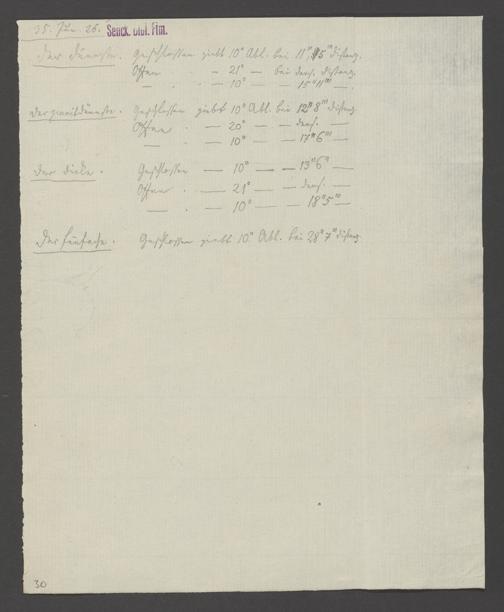 25. Jun. 26. Senck. Bibl. Ffm.
Der dünnste. Geschlossen giebt 10° Abl. bei 11" 5''' Distanz.
Offen — 21° — bei ders. Distanz.
— . — 10° — — 15" 11''' —.
Der zweitdünnste. Geschlossen giebt 10° Abl. bei 12" 8''' Distanz
Offen . — 20° — — ders. —
— . — 10° — — 17" 6''' —
Der dicke. Geschlossen — 10° — — 13" 6''' —
Offen . — 21° — — ders. —
— . — 10° — — 18" 5''' —
Der fünfache. Geschlossen giebt 10° Abl. bei 28" 7''' Distanz.
30